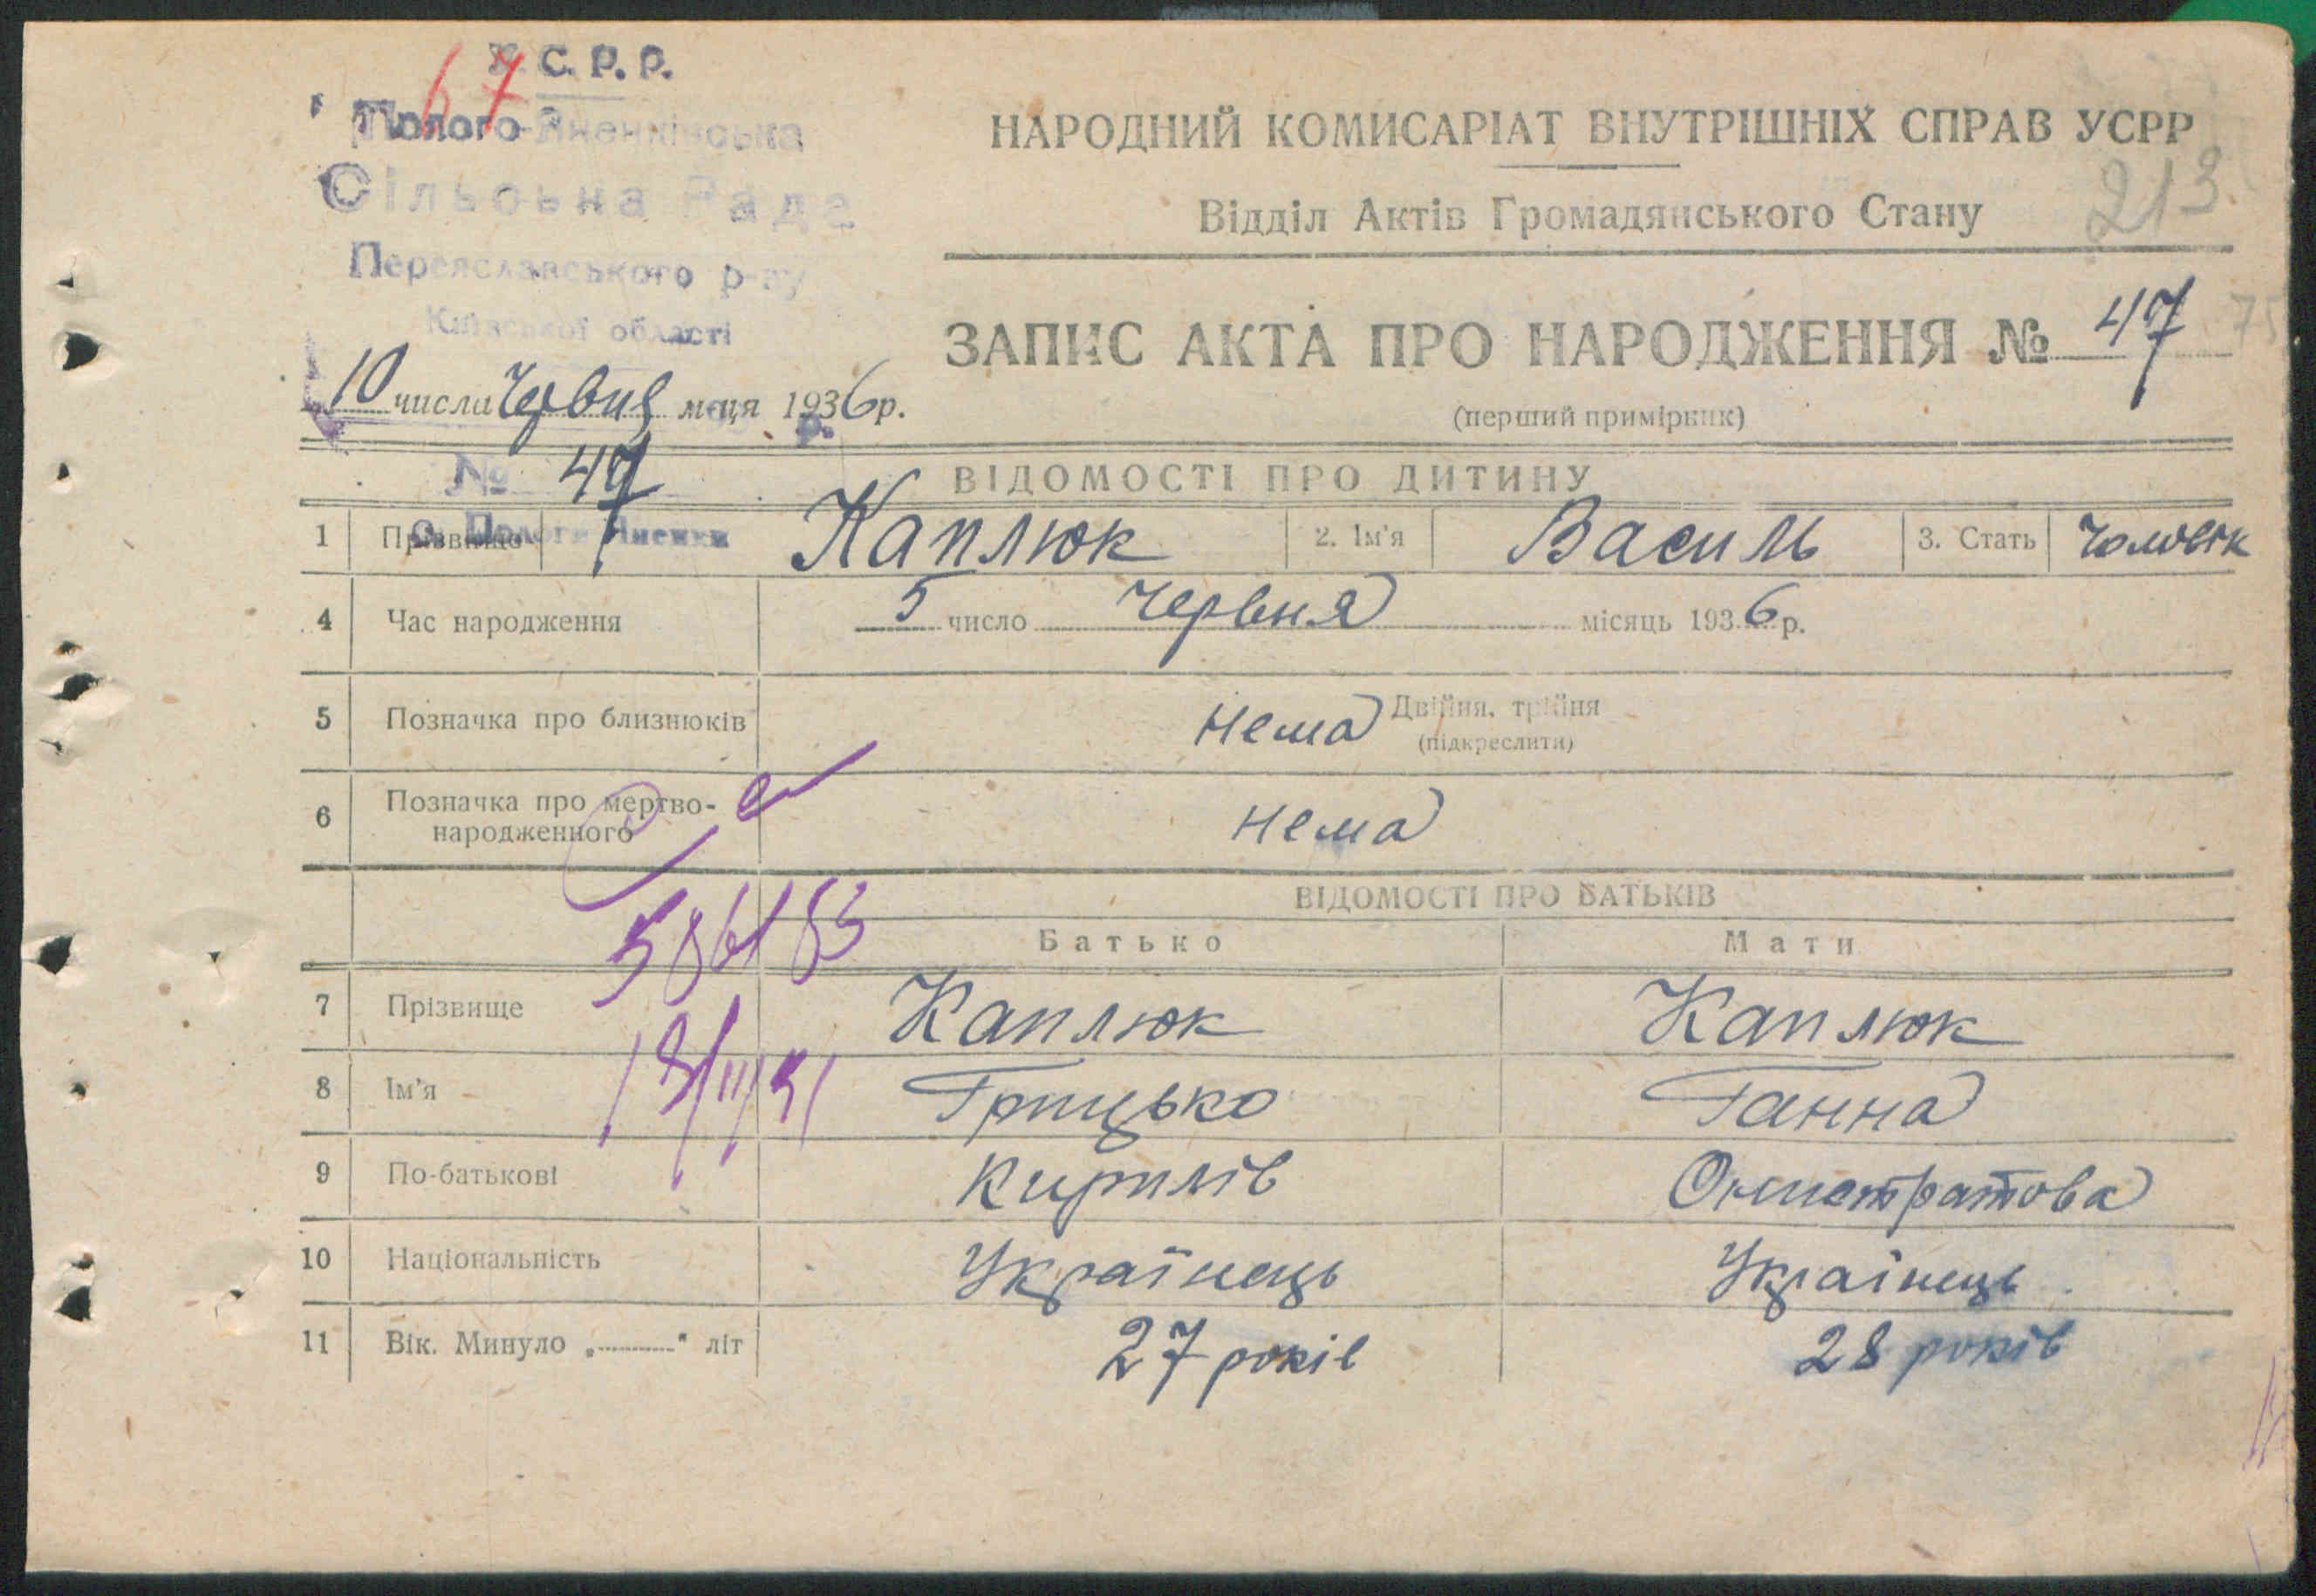 У.С.Р.Р.
67
Полого-Яненківська
Сільська Рада
Переяславського р-ну
Київської області
10 числа Червня м-ця 1936 р.
№ 47
с. Пологи Яненки
НАРОДНИЙ КОМИСАРІАТ ВНУТРІШНІХ СПРАВ УСРР
Відділ Актів Громадянського Стану
213
ЗАПИС АКТА ПРО НАРОДЖЕННЯ № 47
75
(перший примірник)
ВІДОМОСТІ ПРО ДИТИНУ
1 Прізвище Каплюк 2. Ім'я Василь 3. Стать Чоловік
4 Час народження 5 число Червня місяць 1936 р.
5 Позначка про близнюків нема Двійня, трійня
(підкреслити)
6 Позначка про мертво-
народженного нема
ВІДОМОСТІ ПРО БАТЬКІВ
Батько Мати
7 Прізвище Каплюк Каплюк
8 Ім'я Грицько Ганна
9 По-батькові Кирилів
10 Національність Українець Українець
11 Вік. Минуло „ " літ 27 років 28 років